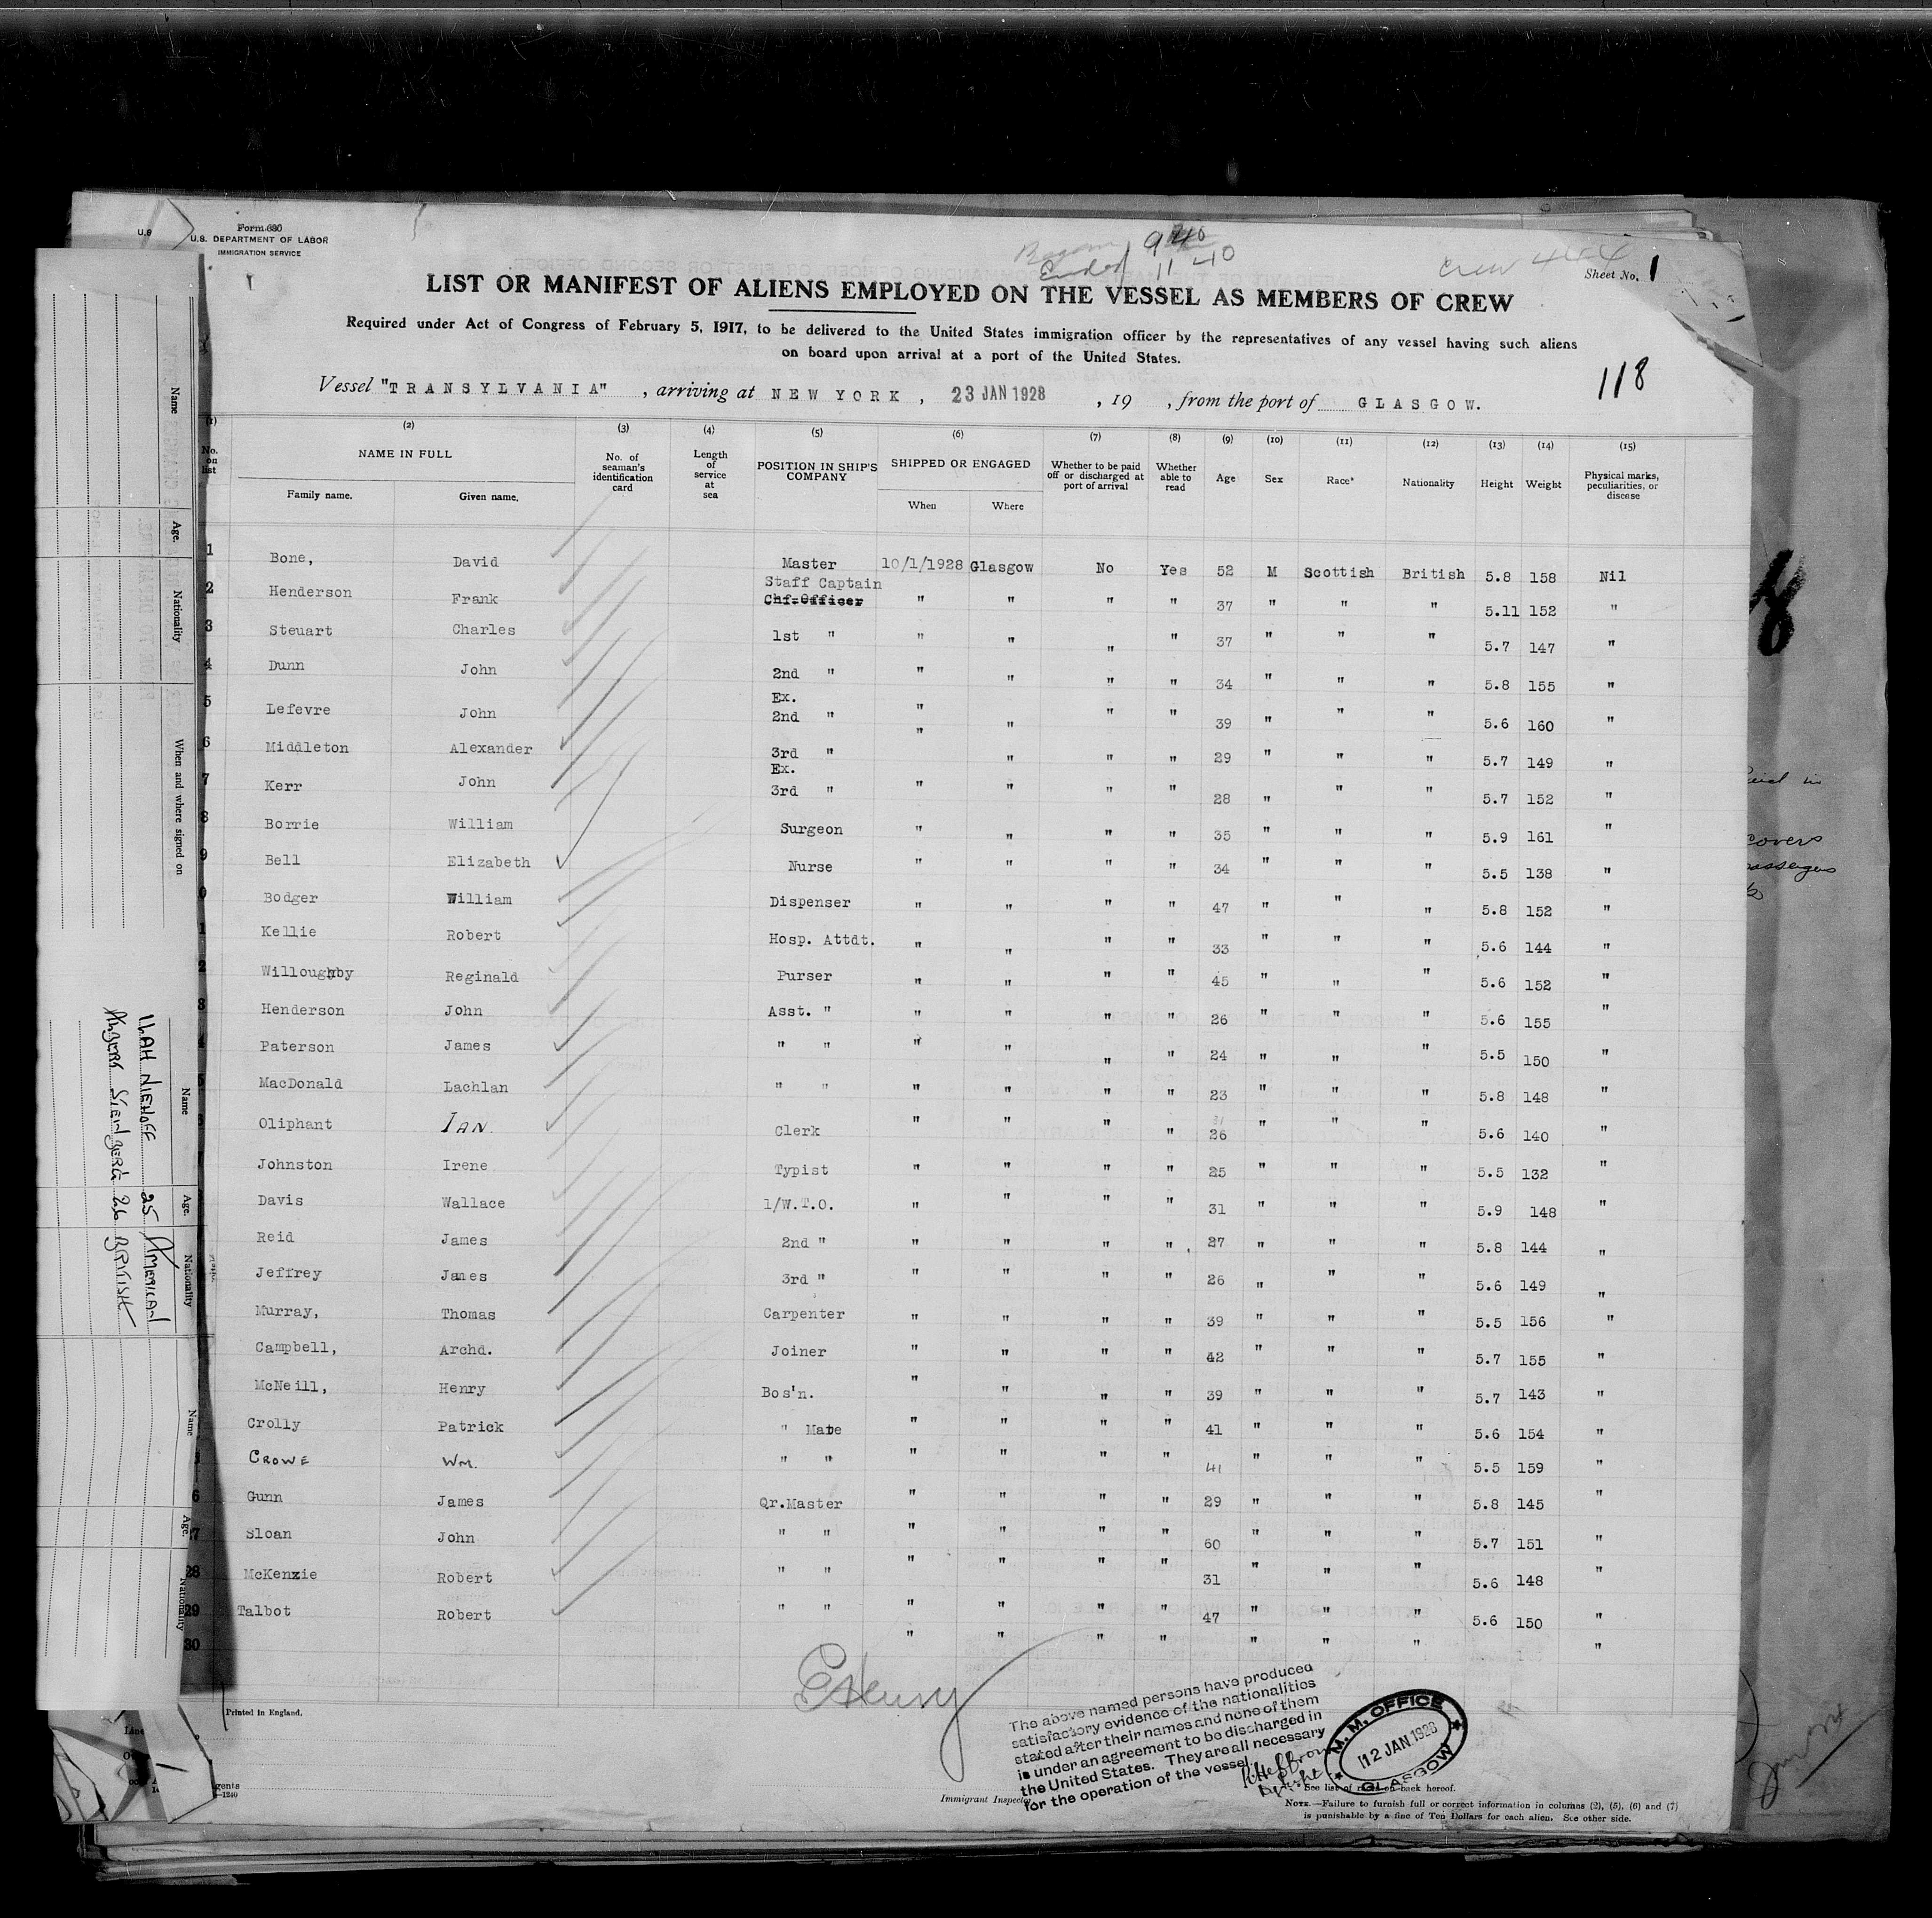 Form 680
U.S. DEPARTMENT OF LABOR
IMMIGRATION SERVICE
Began 9 40
Ended 11 40
Crew 444
Sheet No. 1
LIST OR MANIFEST OF ALIENS EMPLOYED ON THE VESSEL AS MEMBERS OF CREW
Required under Act of Congress of February 5, 1917, to be delivered to the United States immigration officer by the representatives of any vessel having such aliens
on board upon arrival at a port of the United States.
118
Vessel "TRANSYLVANIA" , arriving at NEW YORK , 23 JAN 1928 , 19 , from the port of GLASGOW.
(1) (2) (3) (4) (5) (6) (7) (8) (9) (10) (11) (12) (13) (14) (15)
No. on list NAME IN FULL Family name. Given name. No. of seaman's identification card Length of service at sea POSITION IN SHIP'S COMPANY SHIPPED OR ENGAGED When Where Whether to be paid off or discharged at port of arrival Whether able to read Age Sex Race* Nationality Height Weight Physical marks, peculiarities, or disease
1 Bone, David Master 10/1/1928 Glasgow No Yes 52 M Scottish British 5.8 158 Nil
2 Henderson Frank Staff Captain Chf.Officer " " " " 37 " " " 5.11 152 "
3 Steuart Charles 1st " " " " " 37 " " " 5.7 147 "
4 Dunn John 2nd " " " " " 34 " " " 5.8 155 "
5 Lefevre John Ex. 2nd " " " " " 39 " " " 5.6 160 "
6 Middleton Alexander 3rd " " " " " 29 " " " 5.7 149 "
7 Kerr John Ex. 3rd " " " " " 28 " " " 5.7 152 "
8 Borrie William Surgeon " " " " 35 " " " 5.9 161 "
9 Bell Elizabeth Nurse " " " " 34 " " " 5.5 138 "
0 Bodger William Dispenser " " " " 47 " " " 5.8 152 "
1 Kellie Robert Hosp. Attdt. " " " " 33 " " " 5.6 144 "
2 Willoughby Reginald Purser " " " " 45 " " " 5.6 152 "
3 Henderson John Asst. " " " " " 26 " " " 5.6 155 "
4 Paterson James " " " " " " 24 " " " 5.5 150 "
5 MacDonald Lachlan " " " " " " 23 " " " 5.8 148 "
Oliphant IAN. Clerk " " " " 31 26 " " " 5.6 140 "
Johnston Irene Typist " " " " 25 " " " 5.5 132 "
Davis Wallace 1/W.T.O. " " " " 31 " " " 5.9 148 "
Reid James 2nd " " " " " 27 " " " 5.8 144 "
Jeffrey James 3rd " " " " " 26 " " " 5.6 149 "
Murray, Thomas Carpenter " " " " 39 " " " 5.5 156 "
Campbell, Archd. Joiner " " " " 42 " " " 5.7 155 "
McNeill, Henry Bos'n. " " " " 39 " " " 5.7 143 "
Crolly Patrick " Mate " " " " 41 " " " 5.6 154 "
CROWE WM. " " " " " " 41 " " " 5.5 159 "
6 Gunn James Qr.Master " " " " 29 " " " 5.8 145 "
27 Sloan John " " " " " " 60 " " " 5.7 151 "
28 McKenzie Robert " " " " " " 31 " " " 5.6 148 "
29 Talbot Robert " " " " " " 47 " " " 5.6 150 "
30 " " " " " " " "
E Henry
The above named persons have produced
satisfactory evidence of the nationalities
stated after their names and none of them
is under an agreement to be discharged in
the United States. They are all necessary
for the operation of the vessel.
M. M. OFFICE
12 JAN 1928
GLASGOW
Printed in England.
Immigrant Inspector.
See list of races on back hereof.
NOTE.—Failure to furnish full or correct information in columns (2), (5), (6) and (7)
is punishable by a fine of Ten Dollars for each alien. See other side.
Name Age. Nationality When and where signed on
Name Age. Nationality
ILAH NIEHOFF 25 AMERICAN
26 BRITISH
Name Age. Nationality
gents
—1240
covers
passengers